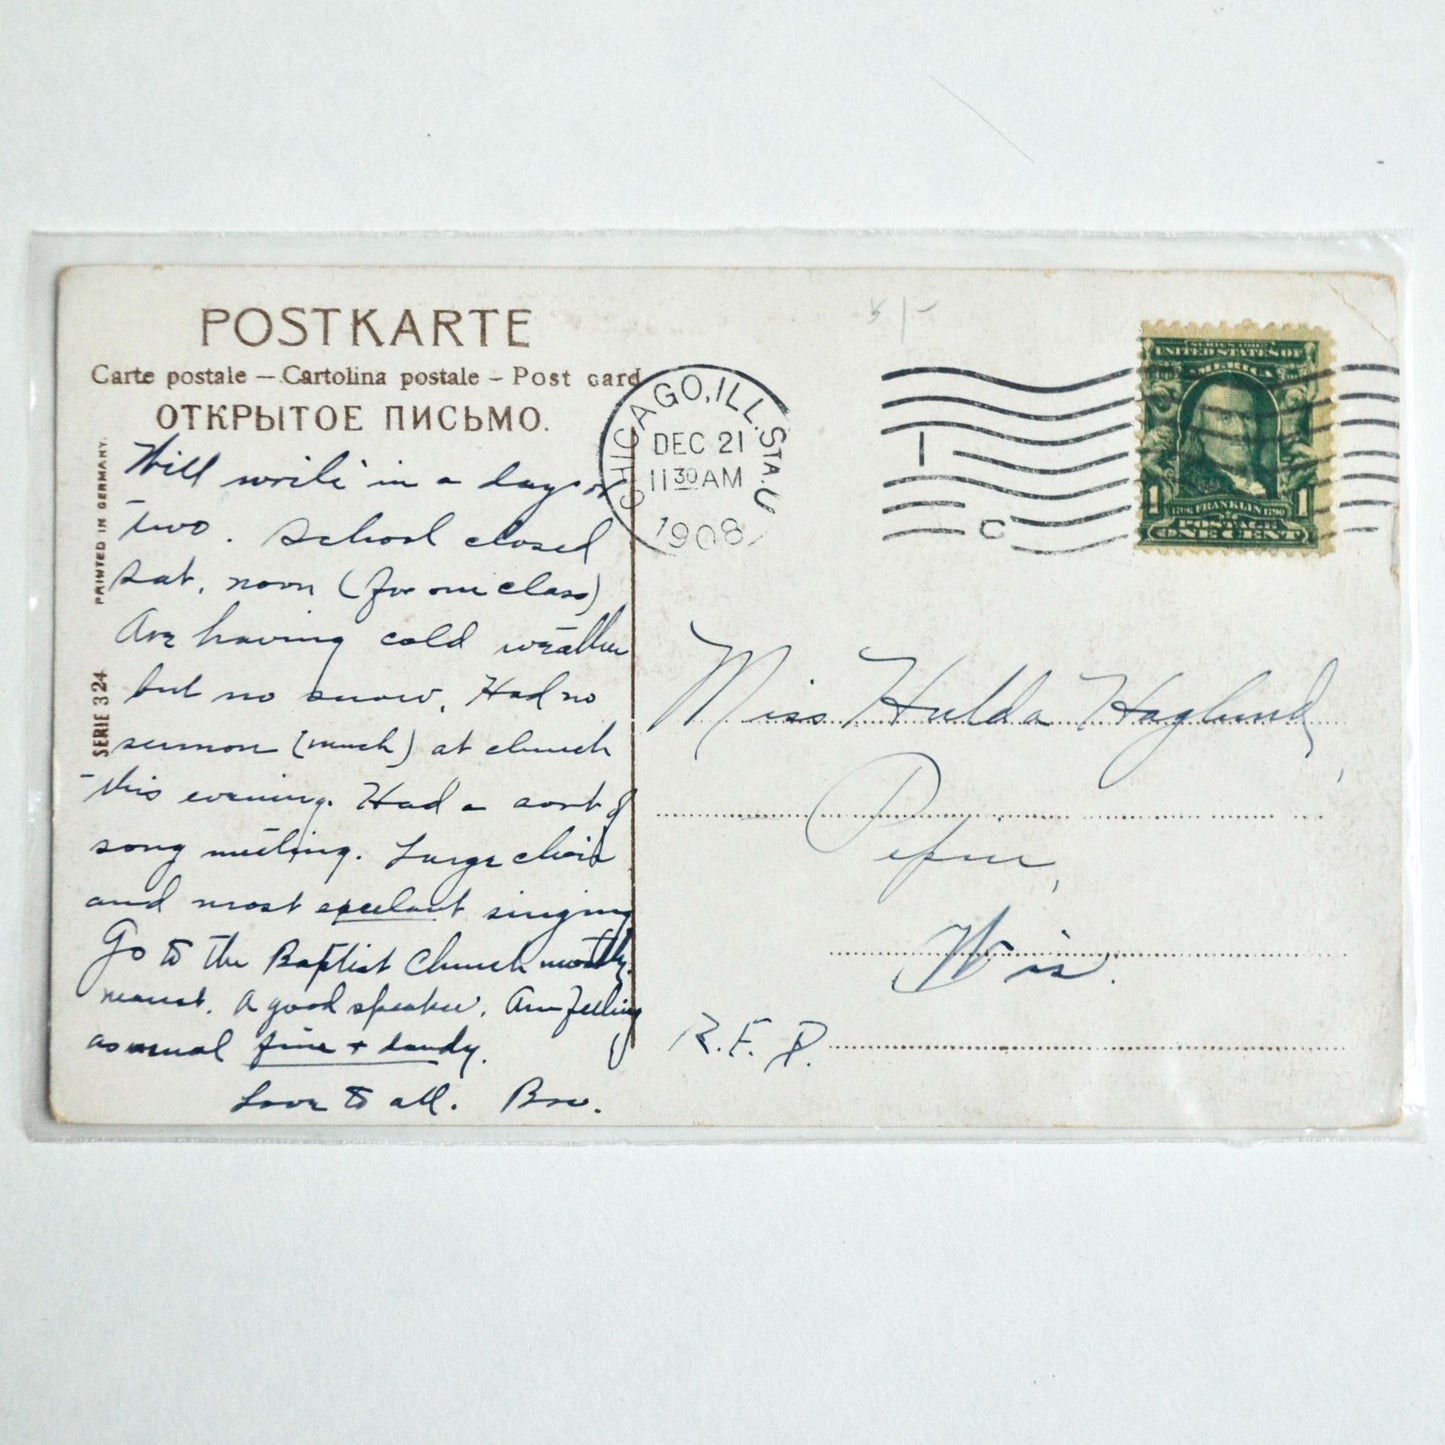 POSTKARTE
Carte postale – Cartolina postale – Post card
ОТКРЫТОЕ ПИСЬМО.
PRINTED IN GERMANY.
SERIE 324
Will write in a day or
two. School closed
Sat. noon (for our class)
Are having cold weather
but no snow. Had no
sermon (much) at church
this evening. Had a sort of
song meeting. Large choir
and most excelant singing
Go to the Baptist Church mostly.
nearest. A good speaker. Am feeling
as usual fine + dandy.
Love to all. Bro.
CHICAGO, ILL. STA. U
DEC 21
11 30 AM
1908
1
C
SERIES 1902
UNITED STATES OF
AMERICA
1706 FRANKLIN 1790
1 POSTAGE 1
ONE CENT
Miss Hulda Haglund,
Pepin,
Wis.
R.F.D.